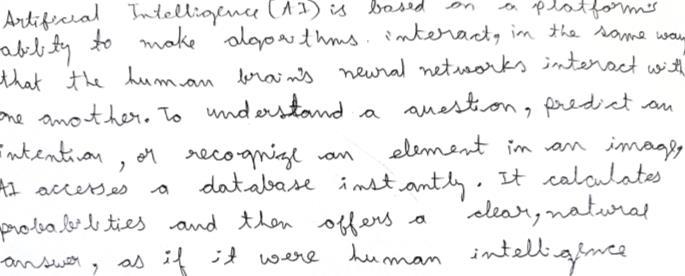 Artificial Intelligence (AI) is based on a platform's
ability to make algorithms. interact, in the same way
that the human brain's neural networks interact with
one another. To understand a question, predict an
intention, or recognize an element in an image,
AI accesses a database instantly. It calculates
probabilities and then offers a clear, natural
answer, as if it were human intelligence